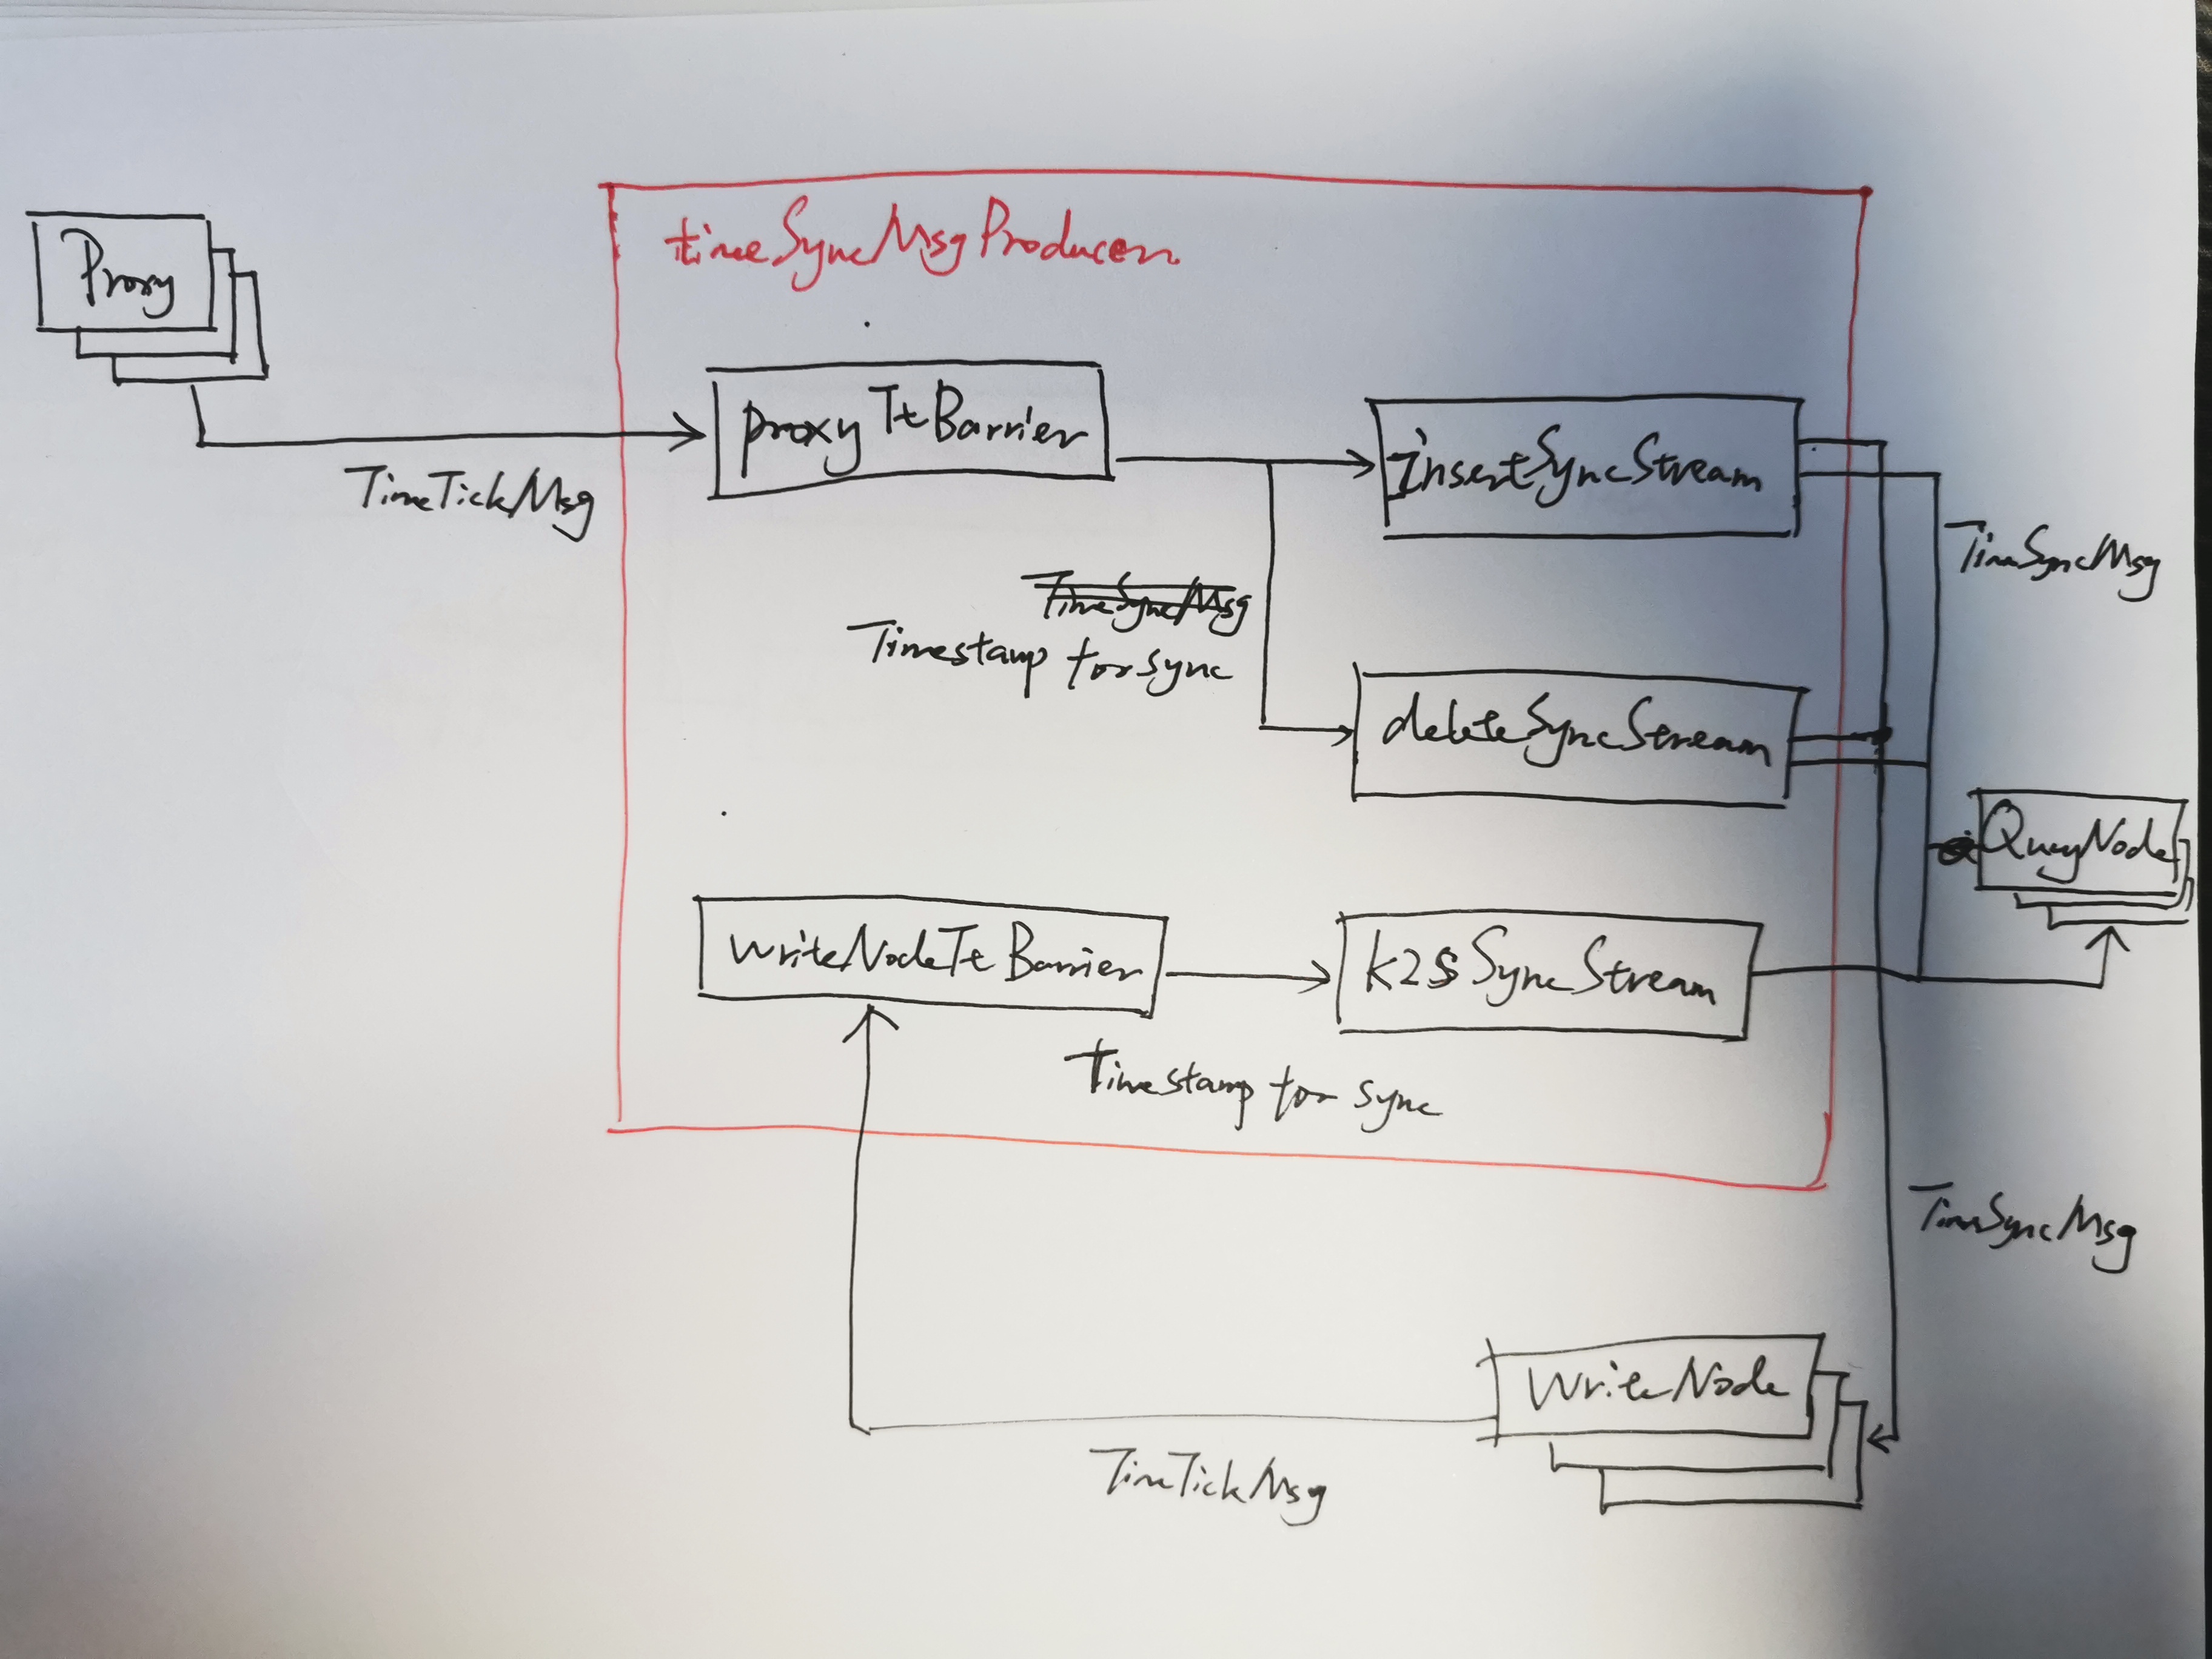 timeSyncMsgProducer
Proxy
proxyTtBarrier
insertSyncStream
TimeTickMsg
TimeSyncMsg
TimeSyncMsg
Timestamp for sync
deleteSyncStream
QueyNode
writeNodeTtBarrier
k2sSyncStream
Timestamp for sync
TimeSyncMsg
WriteNode
TimeTickMsg